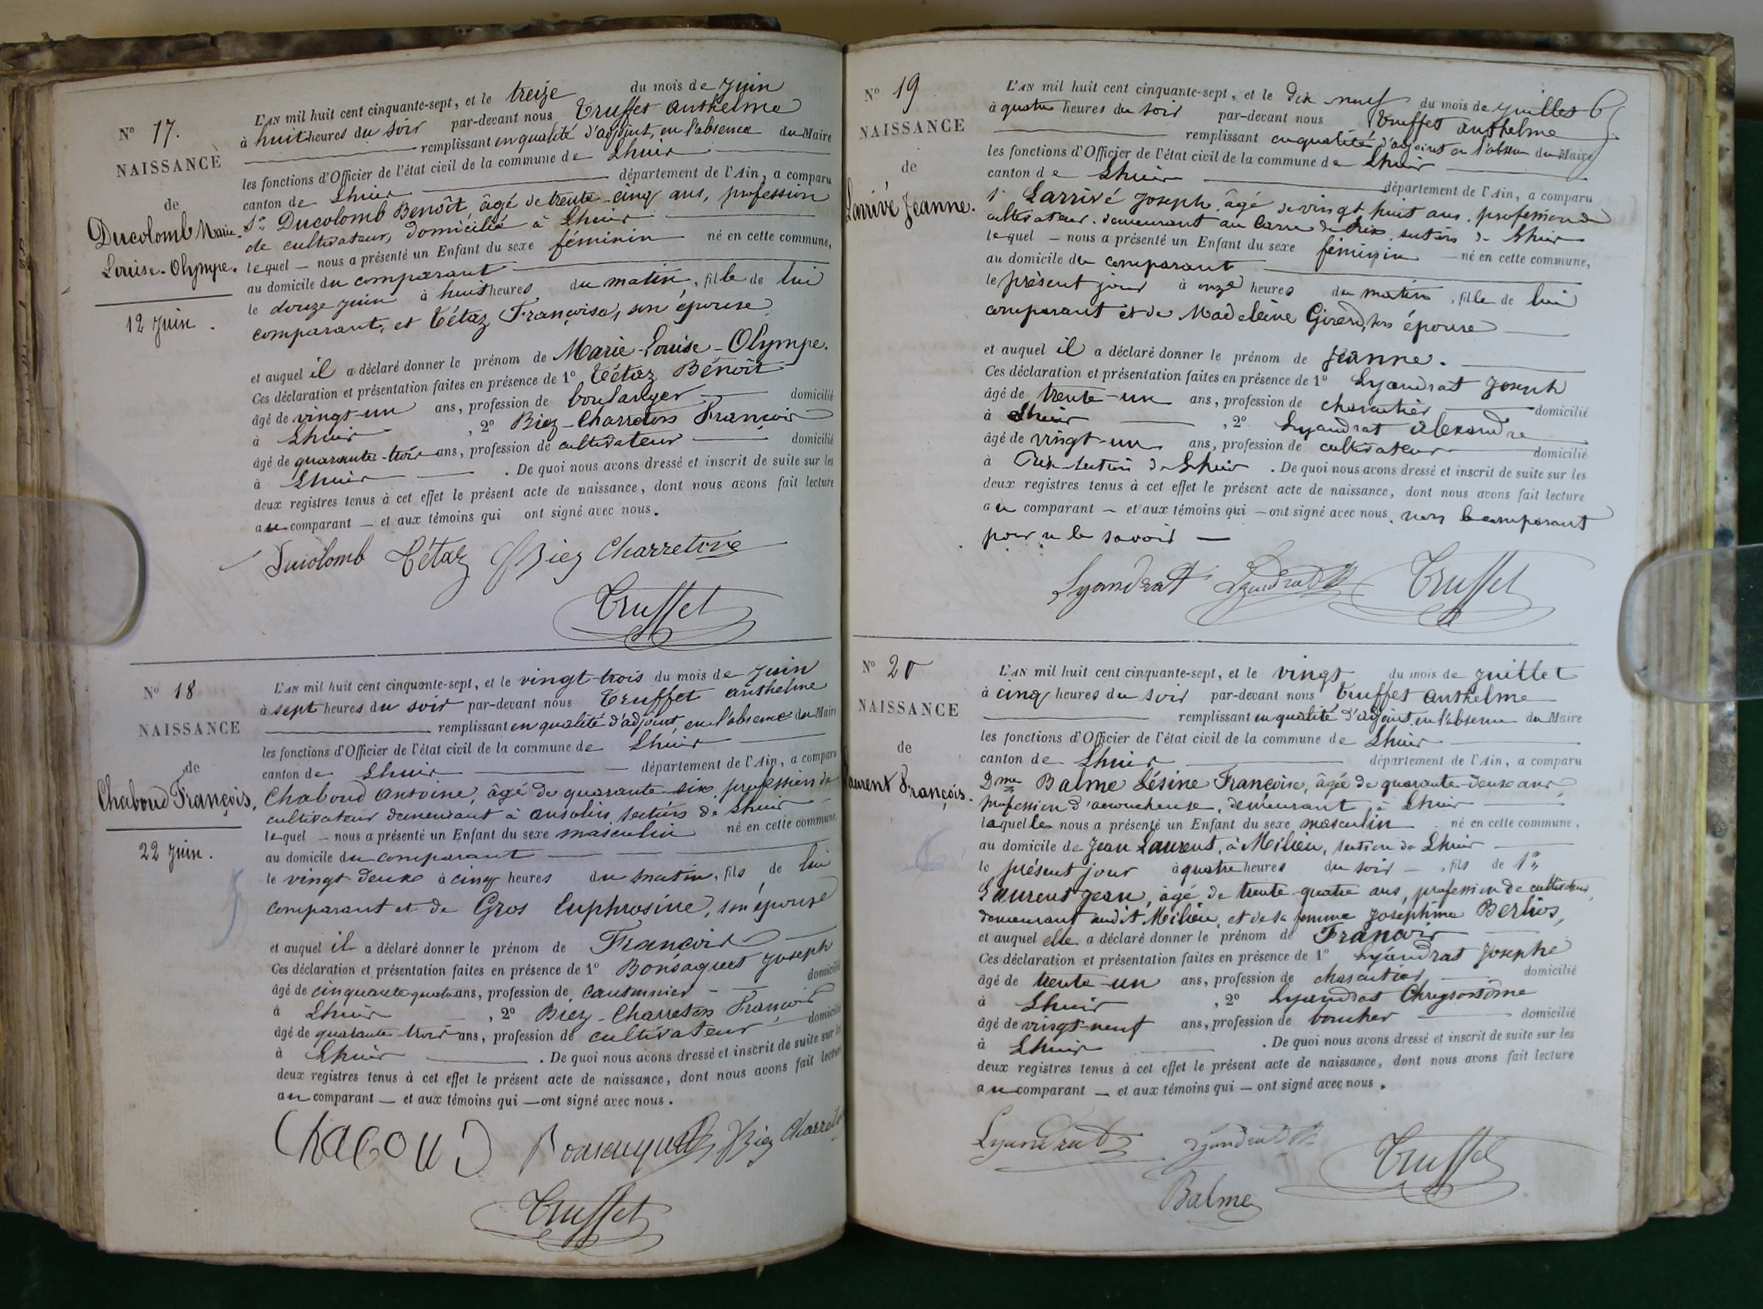 N° 17.
NAISSANCE
de
Ducolomb Marie
Louise-Olympe.
12 Juin.
L'AN mil huit cent cinquante-sept, et le treize du mois de Juin
à huit heures du soir par-devant nous Truffet anthelme
remplissant en qualité d'adjoint, en l'absence du Maire
les fonctions d'Officier de l'état civil de la commune de Lhuis
canton de Lhuis département de l'Ain, a comparu
Sr Ducolomb Benoît, âgé de trente-cinq ans, profession
de cultivateur, domicilié à Lhuis
lequel nous a présenté un Enfant du sexe féminin né en cette commune,
au domicile du comparant
le douze juin à huit heures du matin, fille de lui
comparant, et Tétaz Françoise, son épouse
et auquel il a déclaré donner le prénom de Marie-Louise-Olympe.
Ces déclaration et présentation faites en présence de 1° Tétaz Bénoît
âgé de vingt-un ans, profession de boulanger domicilié
à Lhuis, 2° Biez-Charreton François
âgé de quarante-trois ans, profession de cultivateur domicilié
à Lhuis. De quoi nous avons dressé et inscrit de suite sur les
deux registres tenus à cet effet le présent acte de naissance, dont nous avons fait lecture
au comparant et aux témoins qui ont signé avec nous.
Ducolomb Tétaz Biez Charreton
Truffet
N° 18
NAISSANCE
de
Chaboud François,
22 Juin.
L'AN mil huit cent cinquante-sept, et le vingt-trois du mois de Juin
à sept heures du soir par-devant nous Truffet anthelme
remplissant en qualité d'adjoint, en l'absence du Maire
les fonctions d'Officier de l'état civil de la commune de Lhuis
canton de Lhuis département de l'Ain, a comparu
Chaboud antoine, âgé de quarante-six, profession de
cultivateur demeurant à ansolin, section de Lhuis
lequel nous a présenté un Enfant du sexe masculin né en cette commune
au domicile du comparant
le vingt-deux à cinq heures du matin, fils de lui
comparant et de Gros Euphrosine, son épouse
et auquel il a déclaré donner le prénom de François
Ces déclaration et présentation faites en présence de 1° Joseph
âgé de cinquante quatre ans, profession de cantonnier domicilié
à Lhuis, 2° Biez-Charreton François
âgé de quarante-trois ans, profession de cultivateur domicilié
à Lhuis. De quoi nous avons dressé et inscrit de suite sur les
deux registres tenus à cet effet le présent acte de naissance, dont nous avons fait lecture
au comparant et aux témoins qui ont signé avec nous.
Chaboud Biez Charreton
Truffet
N° 19
NAISSANCE
de
Larrivé Jeanne.
L'AN mil huit cent cinquante-sept, et le dix neuf du mois de Juillet
à quatre heures du soir par-devant nous Truffet anthelme
remplissant en qualité d'adjoint en l'absence du Maire
les fonctions d'Officier de l'état civil de la commune de Lhuis
canton de Lhuis département de l'Ain, a comparu
Sr Larrivé Joseph, âgé de vingt huit ans, profession de
cultivateur, demeurant au section de Lhuis
lequel nous a présenté un Enfant du sexe féminin né en cette commune,
au domicile du comparant
le présent jour à onze heures du matin, fille de lui
comparant et de Madeleine Girerd, son épouse
et auquel il a déclaré donner le prénom de Jeanne.
Ces déclaration et présentation faites en présence de 1° Lyandrat Joseph
âgé de trente-un ans, profession de charcutier domicilié
à Lhuis, 2° Lyandrat Alexandre
âgé de vingt-un ans, profession de cultivateur domicilié
à section de Lhuis. De quoi nous avons dressé et inscrit de suite sur les
deux registres tenus à cet effet le présent acte de naissance, dont nous avons fait lecture
au comparant et aux témoins qui ont signé avec nous, non le comparant
pour ne le savoir
Lyandrat Lyandrat Truffet
N° 20
NAISSANCE
de
Laurent François.
L'AN mil huit cent cinquante-sept, et le vingt du mois de Juillet
à cinq heures du soir par-devant nous Truffet anthelme
remplissant en qualité d'adjoint, en l'absence du Maire
les fonctions d'Officier de l'état civil de la commune de Lhuis
canton de Lhuis département de l'Ain, a comparu
Dme Balme Françoise, âgée de quarante-deux ans,
profession d'accoucheuse, demeurant à Lhuis
laquelle nous a présenté un Enfant du sexe masculin né en cette commune,
au domicile de Jean Laurent, à Milieu, section de Lhuis
le présent jour à quatre heures du soir, fils de 1°
Laurent Jean, âgé de trente-quatre ans, profession de cultivateur
demeurant audit Milieu, et de sa femme Joséphine Berlioz,
et auquel elle a déclaré donner le prénom de François
Ces déclaration et présentation faites en présence de 1° Lyandrat Josephe
âgé de trente-un ans, profession de charcutier domicilié
à Lhuis, 2° Lyandrat Chrysostôme
âgé de vingt-neuf ans, profession de boucher domicilié
à Lhuis. De quoi nous avons dressé et inscrit de suite sur les
deux registres tenus à cet effet le présent acte de naissance, dont nous avons fait lecture
au comparant et aux témoins qui ont signé avec nous.
Lyandrat Lyandrat Truffet
Balme